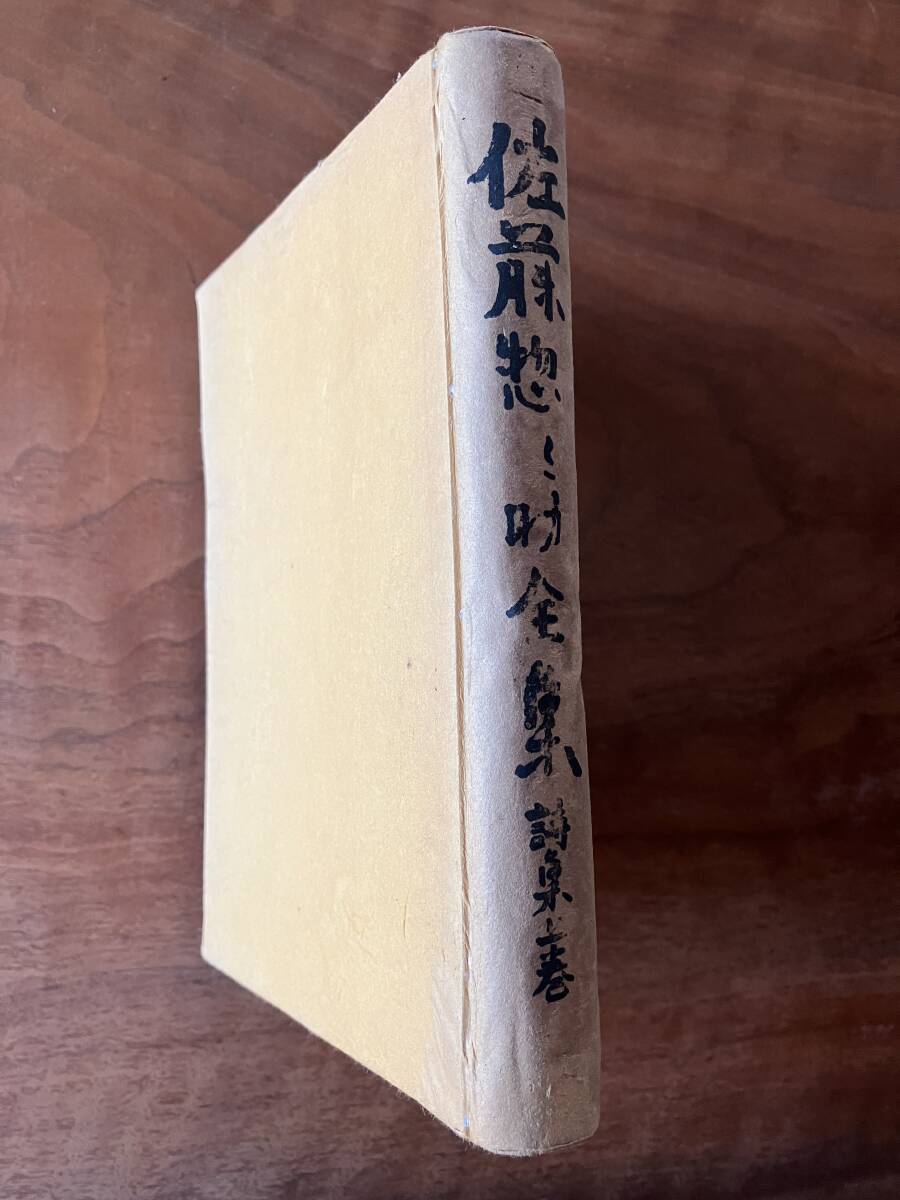 佐藤惣之助全集 詩集上巻